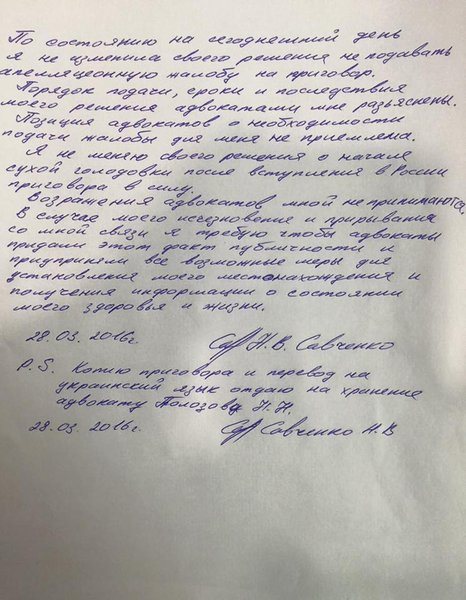 По состоянию на сегоднешний день
я не изменила своего решения не подавать
апелляционную жалобу на приговор.
Порядок подачи, сроки и последствия
моего решения адвокатами мне разъяснены.
Позиция адвокатов о необходимости
подачи жалобы для меня не приемлема.
Я не меняю своего решения о начале
сухой голодовки после вступления в России
приговора в силу.
Возражения адвокатов мной не принимаются.
В случае моего исчезновение и прирывания
со мной связи я требую чтобы адвокаты
придали этот факт публичности и
предприняли все возможные меры для
установления моего местонахождения и
получения информации о состоянии
моего здоровья и жизни.
28.03.2016г. Н.В. Савченко
P.S. Копию приговора и перевод на
украинский язык отдаю на хринение
адвокату Полозову Н.Н.
28.03.2016г. Савченко Н.В